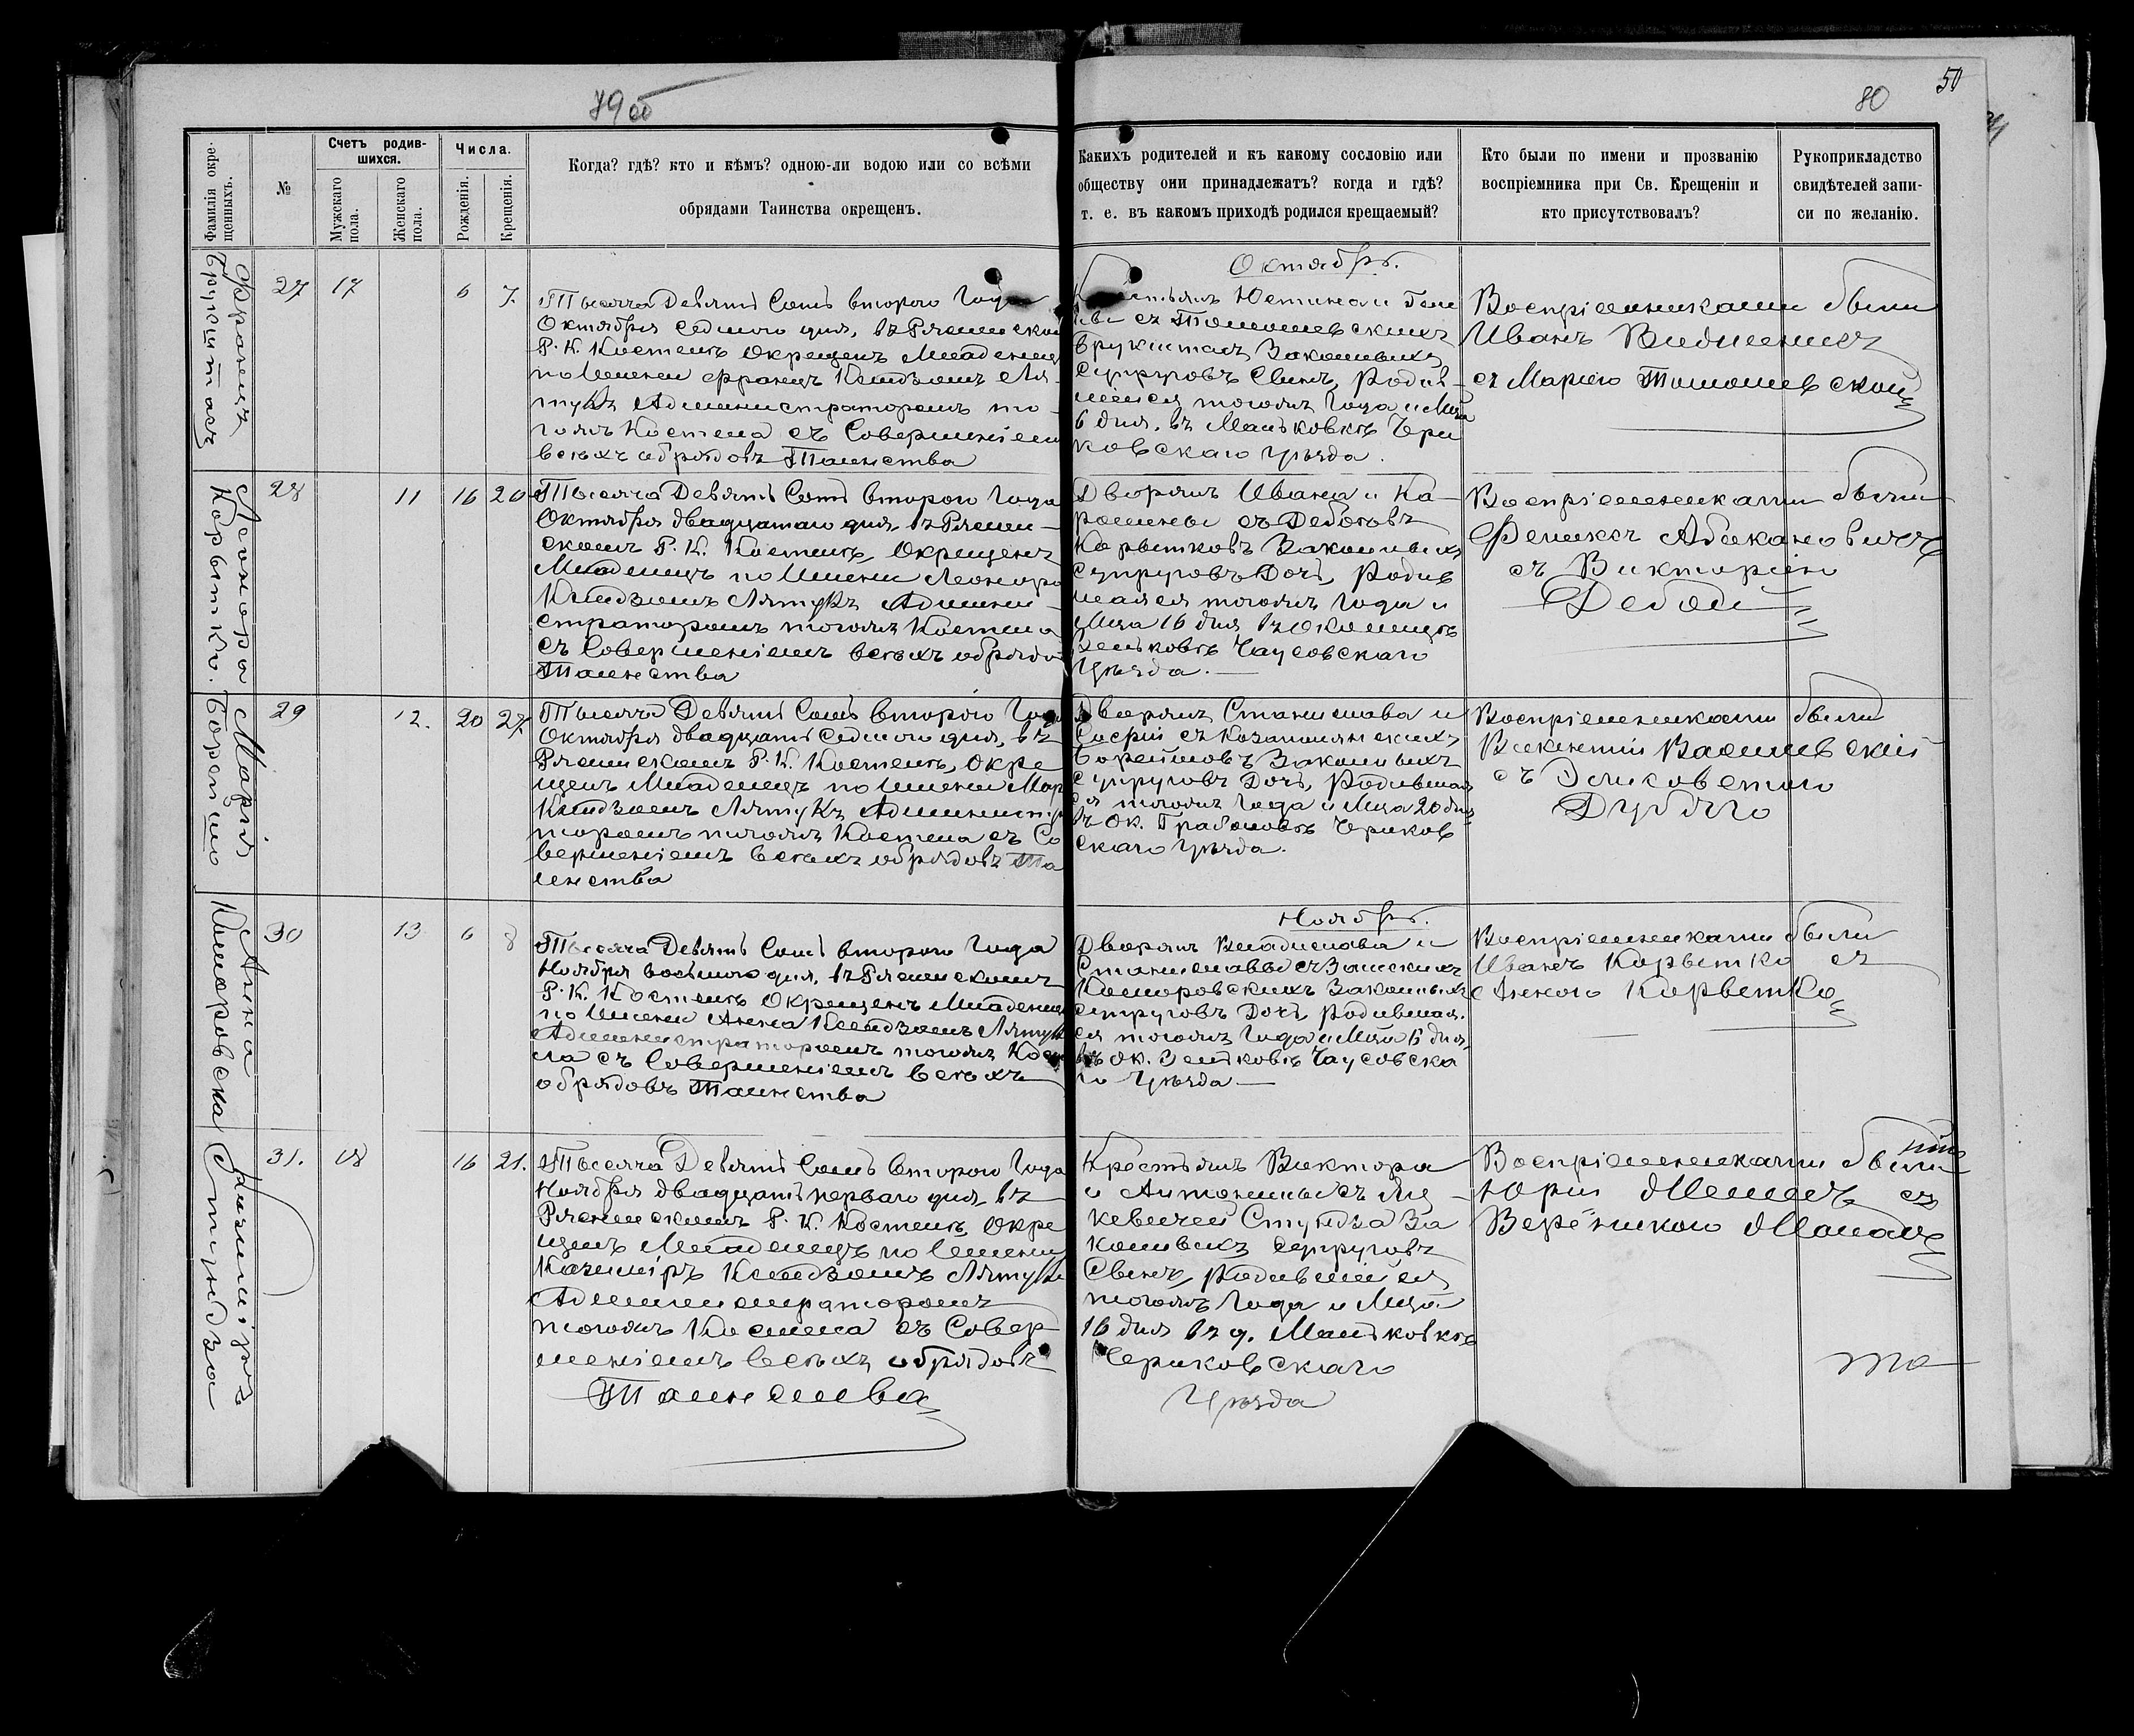 79 об
80
50
Фамилія окре-
щенныхъ.
№
Счетъ родив-
шихся.
Мужскаго
пола.
Женскаго
пола.
Числа.
Рожденія.
Крещенія.
Когда? гдѣ? кто и кѣмъ? одною-ли водою или со всѣми
обрядами Таинства окрещенъ.
Какихъ родителей и къ какому сословію или
обществу они принадлежатъ? когда и гдѣ?
т. е. въ какомъ приходѣ родился крещаемый?
Кто были по имени и прозванію
воспріемника при Св. Крещеніи и
кто присутствовалъ?
Рукоприкладство
свидѣтелей запи-
си по желанію.
Францъ
27 17 6 7
Тысяча Девятъ Сотъ второго Года
Октября седмого дня, въ Рясненской
Р. К. Костелѣ Окрещенъ Младенец
по Имени Францъ Ксіодзомъ Ля-
тукъ Администраторомъ то-
гожъ Костела съ Совершеніем
всѣхъ обрядовъ Таинства
Октябрь.
съ Томашевскихъ
Законныхъ
Супруговъ Сынъ, Родив-
шійся тогожъ Года и Мца
6 дня, въ Маньковкѣ Чери
ковскаго Уѣзда.
Воспріемниками были
Иванъ
съ Маріею Томашевской
Леонора
Корытко.
28 11 16 20
Тысяча Девятъ Сотъ второго Года
Октября двадцатаго дня въ Рясни-
скомъ Р. К. Костелѣ, Окрещенъ
Младенецъ по Имени Леонора
Ксіодзомъ Лятукъ Админи-
страторомъ тогожъ Костела
съ Совершеніемъ всѣхъ обрядо
Таинства
Дворянъ Ивана и Ка-
ролины съ Дебоевъ
Корытковъ Законныхъ
Супруговъ Дочь, Родив
шаяся тогожъ Года и
Мца 16 дня въ Околицѣ
Чаусовскаго
Уѣзда.
Воспріемниками были
Феликсъ Абакановичъ
съ Викторіею
Дебой
Марія
Борейшо
29 12. 20 27.
Тысяча Девятъ Сотъ второго Года
Октября двадцать Седмого дня, въ
Рясненскомъ Р. К. Костелѣ, Окре
щенъ Младенецъ по Имени Мар
Ксіодзомъ Лятукъ Администр
торомъ тогожъ Костела съ Со
вершеніемъ всѣхъ обрядовъ Та
инства
Дворянъ Станислава и
Софіи съ
Борейшовъ Законныхъ
Супруговъ Дочь, Родившая
ся тогожъ Года и Мца 20 дня
въ Ок. Грабовкѣ Чериков
скаго Уѣзда.
Воспріемниками были
Викентій Василевскій
съ Эликоветою
Анна
Коморовска
30 13 6 8
Тысяча Девятъ Сотъ второго Года
Ноября восьмого дня, въ Рясненскомъ
Р. К. Костелѣ Окрещенъ Младенец
по Имени Анна Ксіодзомъ Лятук
Администраторомъ тогожъ Косте
ла съ Совершеніемъ всѣхъ
обрядовъ Таинства
Ноябрь.
Дворянъ Владислава и
Станиславы съ
Коморовскихъ Законныхъ
Супруговъ Дочь, Родившая-
ся тогожъ Года и Мца 6 дня,
въ Ок. Чаусовска
го Уѣзда
Воспріемниками были
Иванъ Корытко съ
Анною Корветко
Казиміръ
Стундза
31. 18 16 21.
Тысяча Девятъ Сотъ второго Года
Ноября двадцать перваго дня, въ
Рясненскомъ Р. К. Костелѣ, Окре
щенъ Младенецъ по Имени
Казиміръ Ксіодзомъ Лятукъ
Администраторомъ
тогожъ Костела съ Совер
шеніемъ всѣхъ обрядовъ
Таинства
Крестьянъ Виктора
и Антонины съ
Стундза За
конныхъ Супруговъ
Сынъ, Родившійся
тогожъ Года и Мца
16 дня въ д. Маньковкѣ
Чериковскаго
Уѣзда
Воспріемниками были
Юрій съ
Вероникою